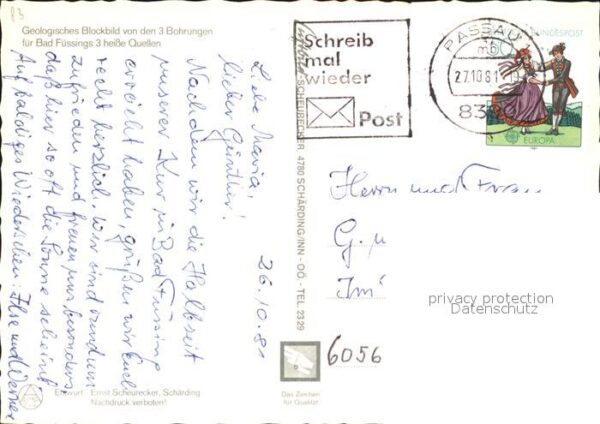 83
Geologisches Blockbild von den 3 Bohrungen
für Bad Füssings 3 heiße Quellen
26.10.81
Liebe Maria,
lieber Günther!
Nachdem wir die Halbzeit
unserer Kur in Bad Füssing
erreicht haben, grüßen wir Euch
recht herzlich. Wir sind rundum
zufrieden und freuen uns besonders,
daß hier so oft die Sonne scheint.
Auf baldiges Wiedersehen: Ilse und Werner
Entwurf Ernst Scheurecker, Schärding
Nachdruck verboten!
SCHEURECKER, 4780 SCHÄRDING/INN - OÖ - TEL. 23 29
Das Zeichen
für Qualität
Schreib
mal
wieder
Post
PASSAU
mb
27.10.81
83
BUNDESPOST
EUROPA
Herrn und Frau
G. u
Im
6056
privacy protection
Datenschutz